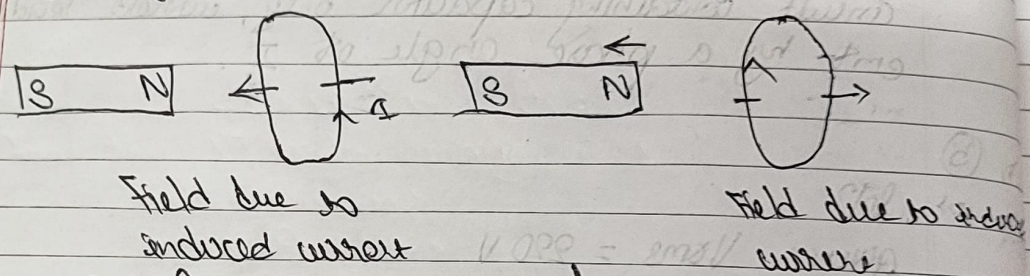 S N
I
S N
Field due to
induced current
Field due to induced
current